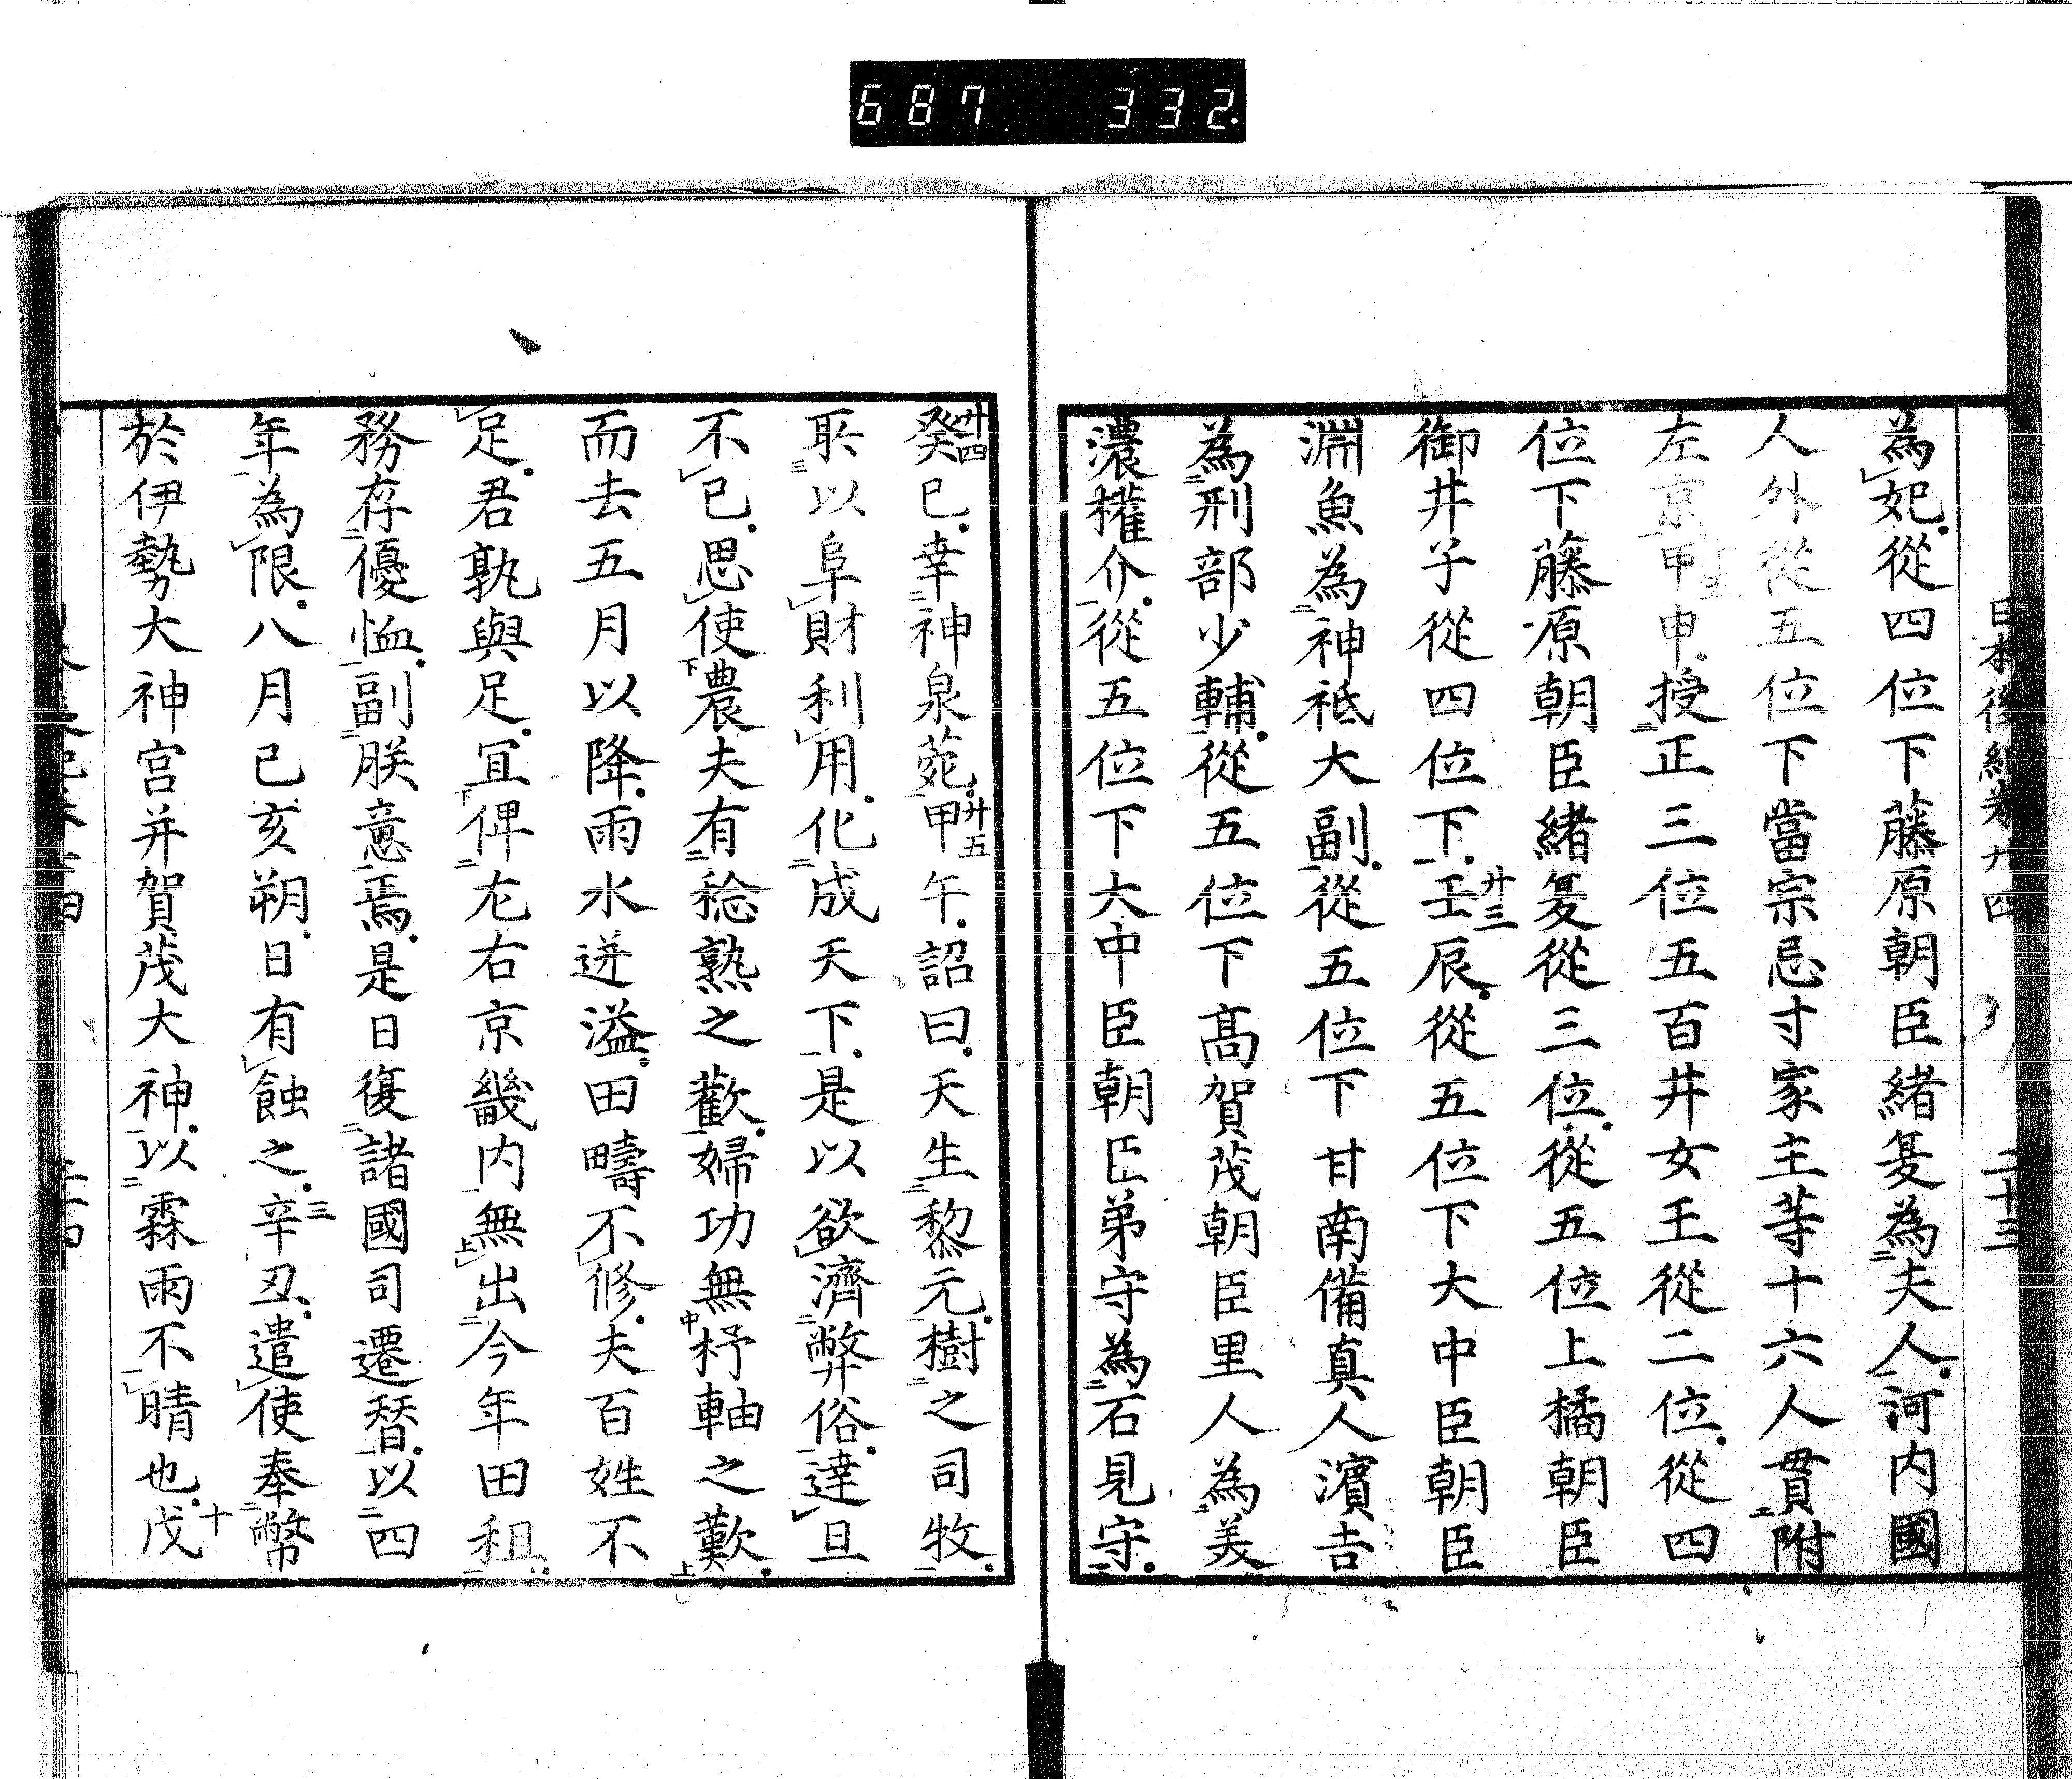 687 332.
日本後紀卷
二十三
為妃從四位下藤原朝臣緒夏為夫人河内國
人外從五位下當宗忌寸家主等十六人貫附
左京甲申授正三位五百井女王從二位從四
位下藤原朝臣緒夏從三位從五位上橘朝臣
御井子從四位下壬辰從五位下大中臣朝臣
廿三
淵魚為神祇大副從五位下甘南備真人濱吉
為刑部少輔從五位下髙賀茂朝臣里人為美
濃權介從五位下大中臣朝臣弟守為石見守
癸巳幸神泉菀甲午詔曰天生黎元樹之司牧
廿四
廿五
所以阜財利用化成天下是以欲濟弊俗達旦
不已思使農夫有稔熟之歡婦功無杼軸之歎
而去五月以降雨水迸溢田疇不修夫百姓不
足君孰與足冝俾左右京畿内無出今年田租
務存優恤副朕意焉是日復諸國司遷替以四
年為限八月己亥朔日有蝕之辛丑遣使奉幣
三
於伊勢大神宮并賀茂大神以霖雨不晴也戊
十